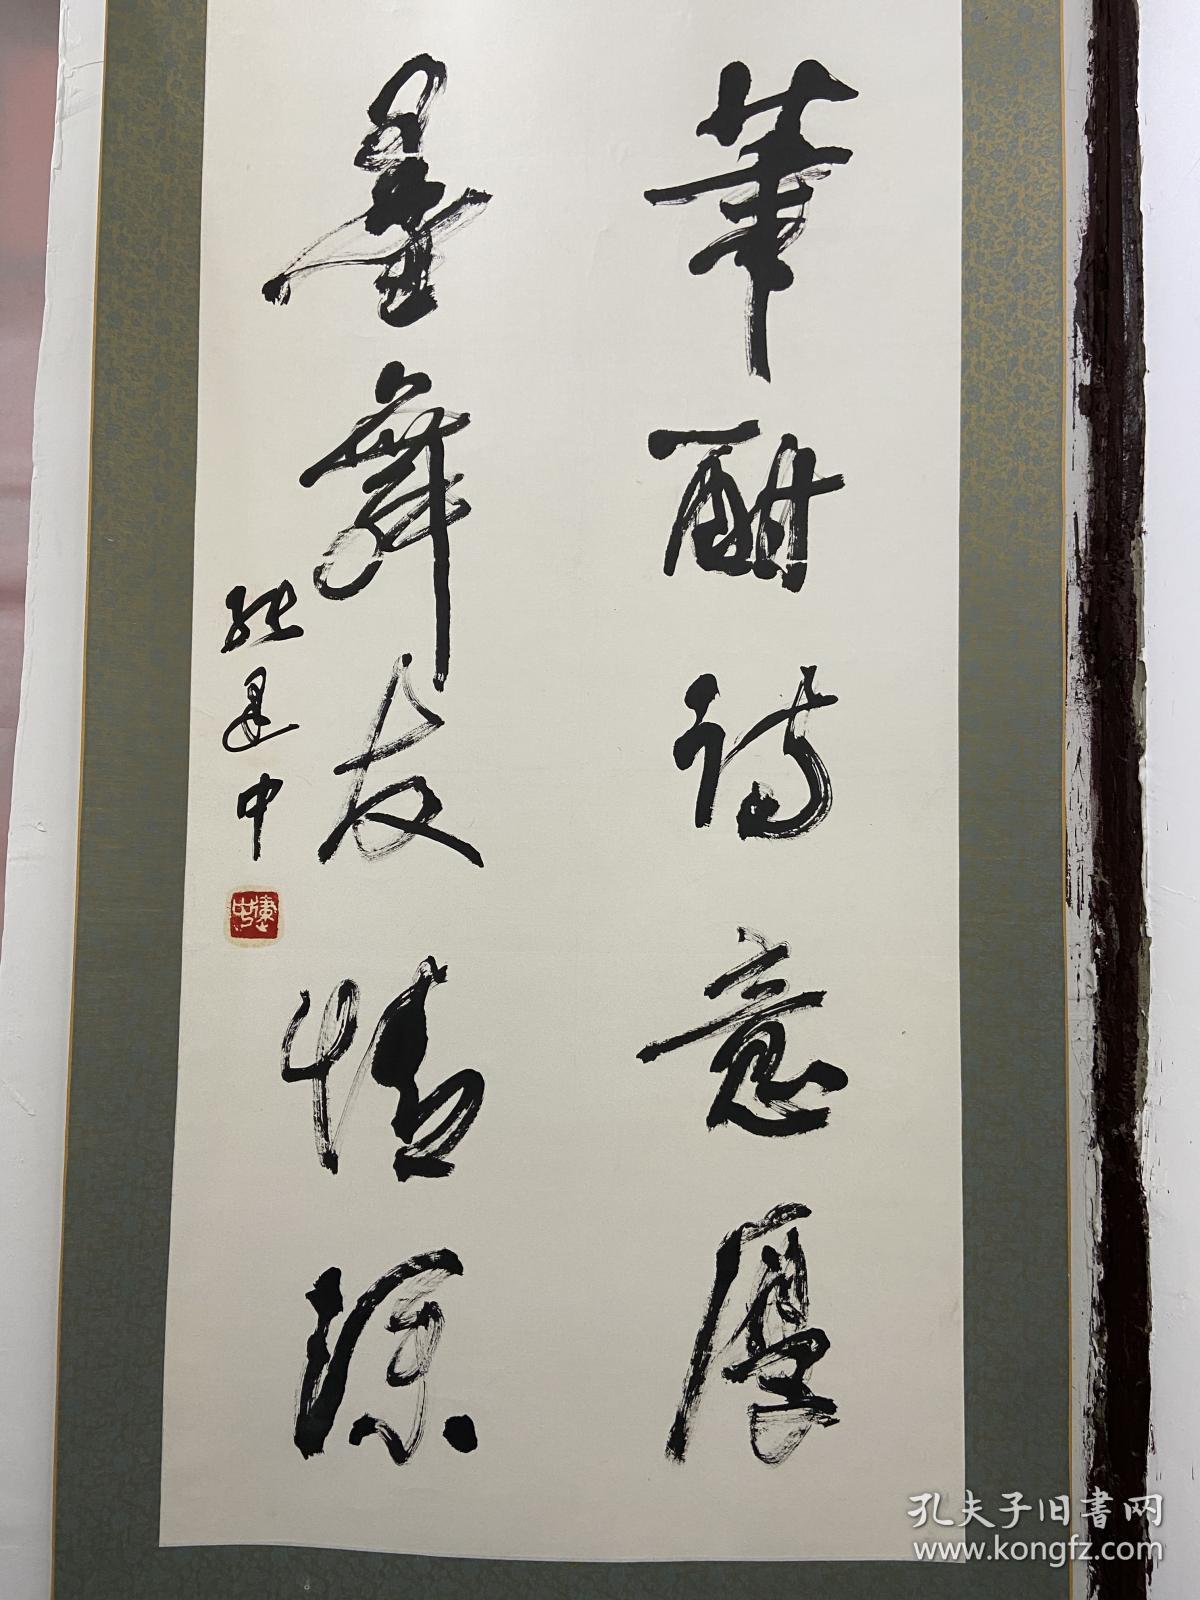 筆酣詩意厚
墨舞友情深
張建中
建中
孔夫子旧書网
www.kongfz.com